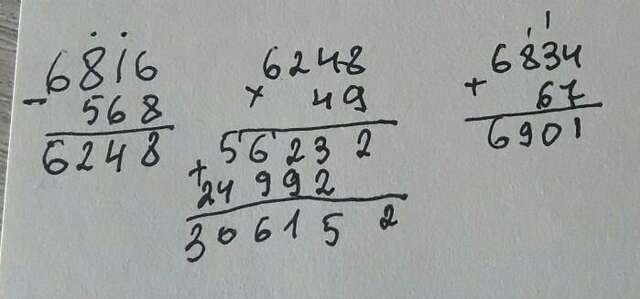 6816
- 568
6248
6248
× 49
56232
+ 24992
306152
11
6834
+ 67
6901